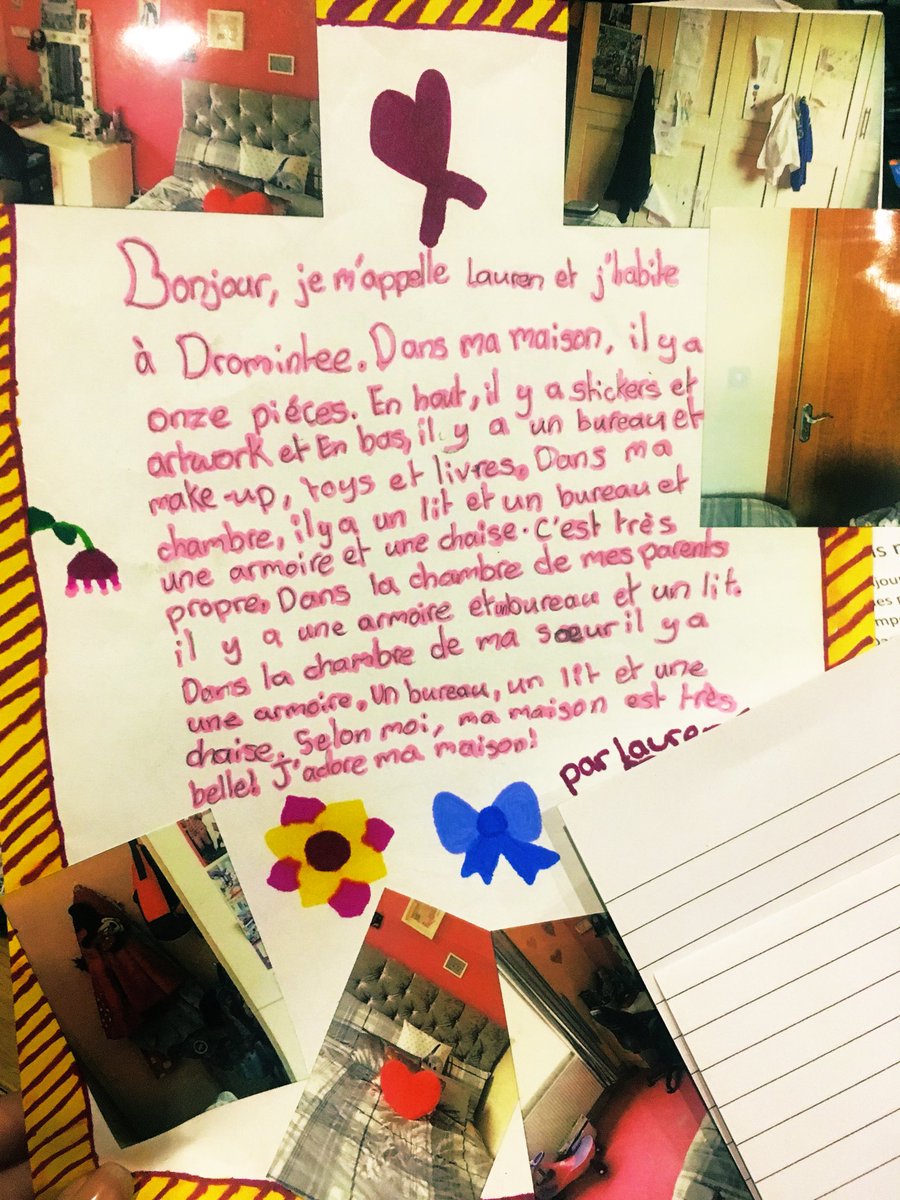 Bonjour, je m'appelle Lauren et j'habite
à Dromintee. Dans ma maison, il y a
onze piéces. En haut, il y a stickers et
artwork et En bas, il y a un bureau et
make-up, toys et livres. Dans ma
chambre, il y a un lit et un bureau et
une armoire et une chaise. C'est très
propre. Dans la chambre de mes parents
il y a une armoire et un bureau et un lit.
Dans la chambre de ma sœur il y a
une armoire, un bureau, un lit et une
chaise. Selon moi, ma maison est très
belle! J'adore ma maison!
par